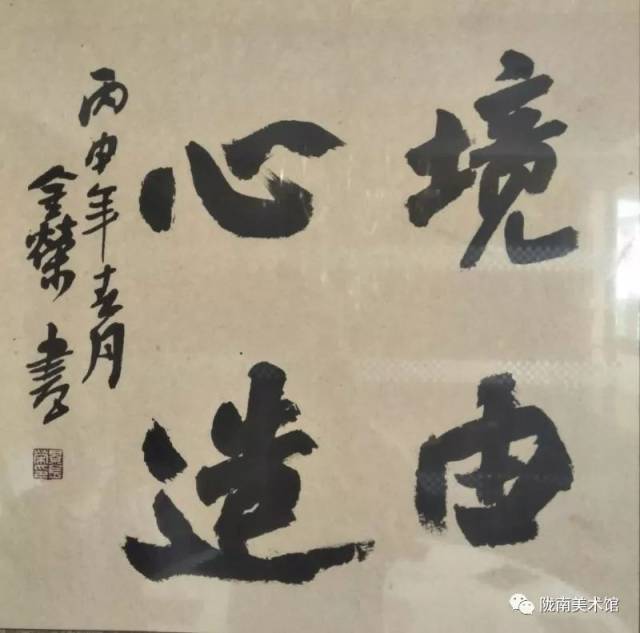 境由
心造
丙申年春月
金荣書
陇南美术馆